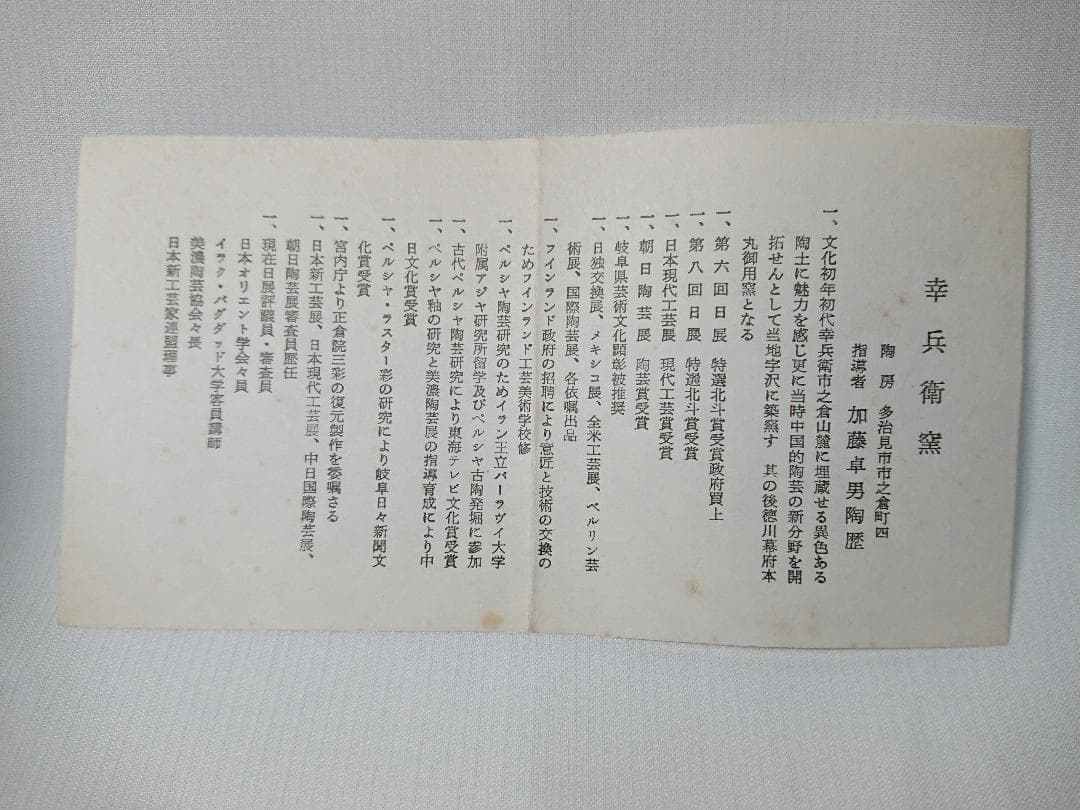 幸兵衛窯
陶房 多治見市市之倉町四
指導者 加藤卓男陶歴
一、文化初年初代幸兵衛市之倉山麓に埋蔵せる異色ある
陶土に魅力を感じ更に当時中国的陶芸の新分野を開
拓せんとして当地字沢に築窯す 其の後徳川幕府本
丸御用窯となる
一、第六回日展 特選北斗賞受賞政府買上
一、第八回日展 特選北斗賞受賞
一、日本現代工芸展 現代工芸賞受賞
一、朝日陶芸展 陶芸賞受賞
一、岐阜県芸術文化顕彰被推奨
一、日独交換展、メキシコ展、全米工芸展、ベルリン芸
術展、国際陶芸展、各依嘱出品
一、フインランド政府の招聘により意匠と技術の交換の
ためフインランド工芸美術学校修
一、ペルシヤ陶芸研究のためイラン王立パーラヴイ大学
附属アジヤ研究所留学及びペルシヤ古陶発堀に参加
一、古代ペルシヤ陶芸研究により東海テレビ文化賞受賞
一、ペルシヤ釉の研究と美濃陶芸展の指導育成により中
日文化賞受賞
一、ペルシヤ・ラスター彩の研究により岐阜日々新聞文
化賞受賞
一、宮内庁より正倉院三彩の復元製作を委嘱さる
一、日本新工芸展、日本現代工芸展、中日国際陶芸展、
朝日陶芸展審査員歴任
一、現在日展評議員・審査員
日本オリエント学会々員
イラク・バグダッド大学客員講師
美濃陶芸協会々長
日本新工芸家連盟理事